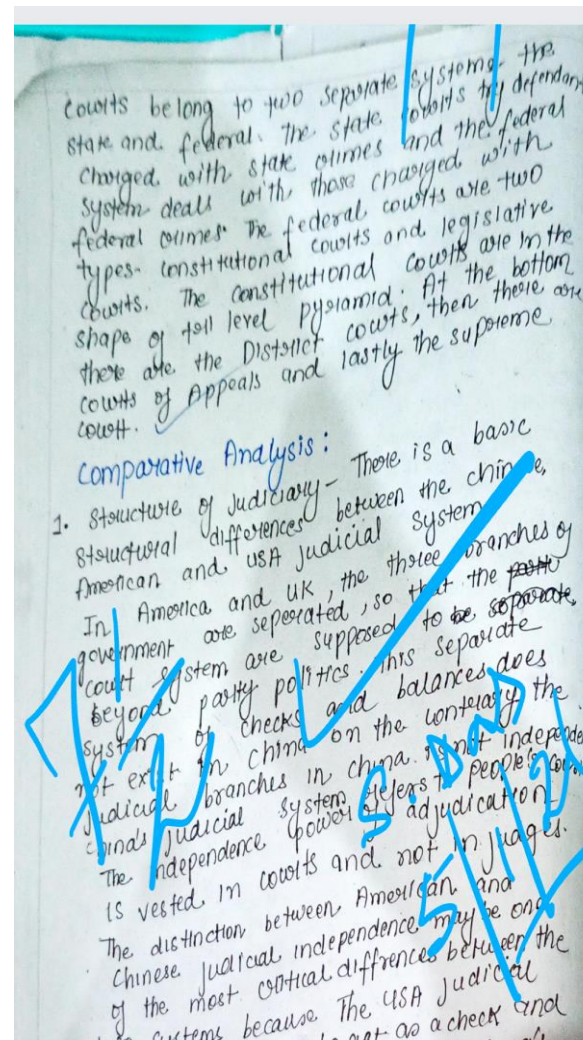 courts belong to two separate systems- the
state and federal. The state courts try defendan
charged with state crimes and the federal
system deals with those charged with
federal crimes. The federal courts are two
types- constitutional courts and legislative
courts. The constitutional courts are in the
shape of level pyramid. At the bottom
there are the District courts, then there are
courts of Appeals and lastly the supreme
court.
Comparative Analysis:
1. Structure of Judiciary- There is a basic
structural differences between the
American and USA judicial system
In America and UK, the three branches of
government are seperated, so that the
court system are supposed to be separate,
beyond party politics. This separate
system of checks and balances does
not exist in China on the contrary the
judicial branches in china. is not independe
china's judicial system refers to people's
The independence power of adjudication
is vested in courts and not in judges.
The distinction between American and
Chinese judicial independence may be one
of the most critical diffrences between the
systems because The USA judicial
act as a check and
7 1/2
S. Das